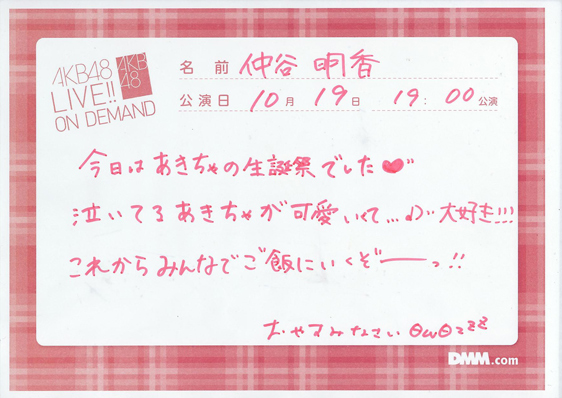 AKB48
LIVE!!
ON DEMAND
AKB
48
名前 仲谷 明香
公演日 10月 19日 19:00公演
今日はあきちゃの生誕祭でした♥"
泣いてるあきちゃが可愛いくて…♪" 大好き!!!
これからみんなでご飯にいくぞーーっ!!
おやすみなさい ΘωΘzzz
DMM.com